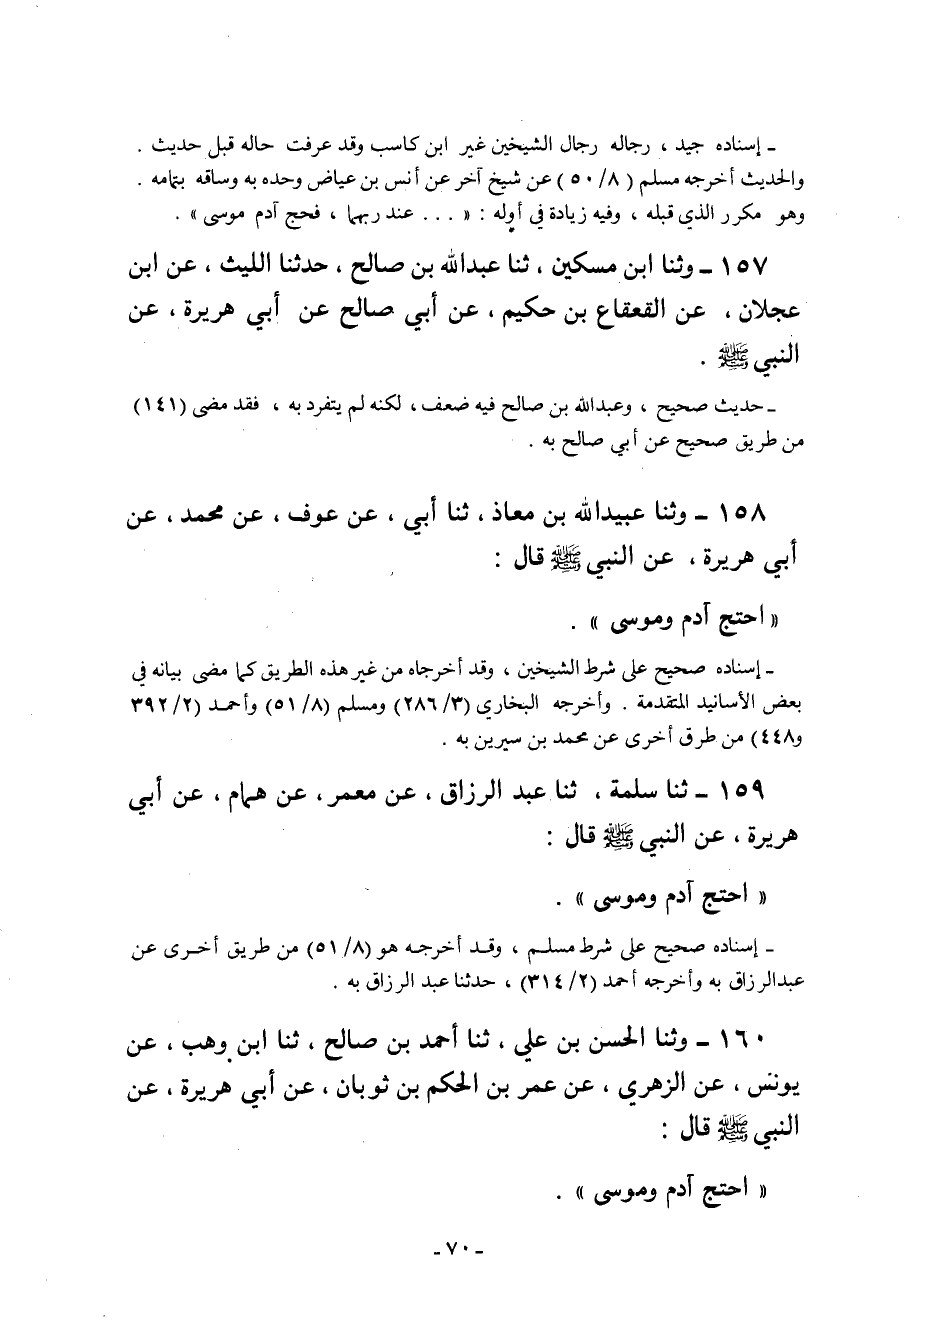 ـ إسناده جيد ، رجاله رجال الشيخين غير ابن كاسب وقد عرفت حاله قبل حديث .
والحديث أخرجه مسلم ( ٨/ ٥٠ ) عن شيخ آخر عن أنس بن عياض وحده به وساقه بتمامه .
وهو مكرر الذي قبله ، وفيه زيادة في أوله : « . . . عند ربهما ، فحج آدم موسى » .
١٥٧ ـ وثنا ابن مسكين ، ثنا عبدالله بن صالح ، حدثنا الليث ، عن ابن
عجلان ، عن القعقاع بن حكيم ، عن أبي صالح عن أبي هريرة ، عن
النبي ﷺ .
ـ حديث صحيح ، وعبدالله بن صالح فيه ضعف ، لكنه لم يتفرد به ، فقد مضى (١٤١)
من طريق صحيح عن أبي صالح به .
١٥٨ ـ وثنا عبيدالله بن معاذ ، ثنا أبي ، عن عوف ، عن محمد ، عن
أبي هريرة ، عن النبي ﷺ قال :
« احتج آدم وموسى » .
ـ إسناده صحيح على شرط الشيخين ، وقد أخرجاه من غير هذه الطريق كما مضى بيانه في
بعض الأسانيد المتقدمة . وأخرجه البخاري (٣/ ٢٨٦) ومسلم (٨/ ٥١) وأحمد (٢/ ٣٩٢
و٤٤٨) من طرق أخرى عن محمد بن سيرين به .
١٥٩ ـ ثنا سلمة ، ثنا عبد الرزاق ، عن معمر ، عن همام ، عن أبي
هريرة ، عن النبي ﷺ قال :
« احتج آدم وموسى » .
ـ إسناده صحيح على شرط مسلم ، وقد أخرجه هو (٨/ ٥١) من طريق أخرى عن
عبدالرزاق به وأخرجه أحمد (٢/ ٣١٤) ، حدثنا عبد الرزاق به .
١٦٠ ـ وثنا الحسن بن علي ، ثنا أحمد بن صالح ، ثنا ابن وهب ، عن
يونس ، عن الزهري ، عن عمر بن الحكم بن ثوبان ، عن أبي هريرة ، عن
النبي ﷺ قال :
« احتج آدم وموسى » .
ـ ٧٠ ـ